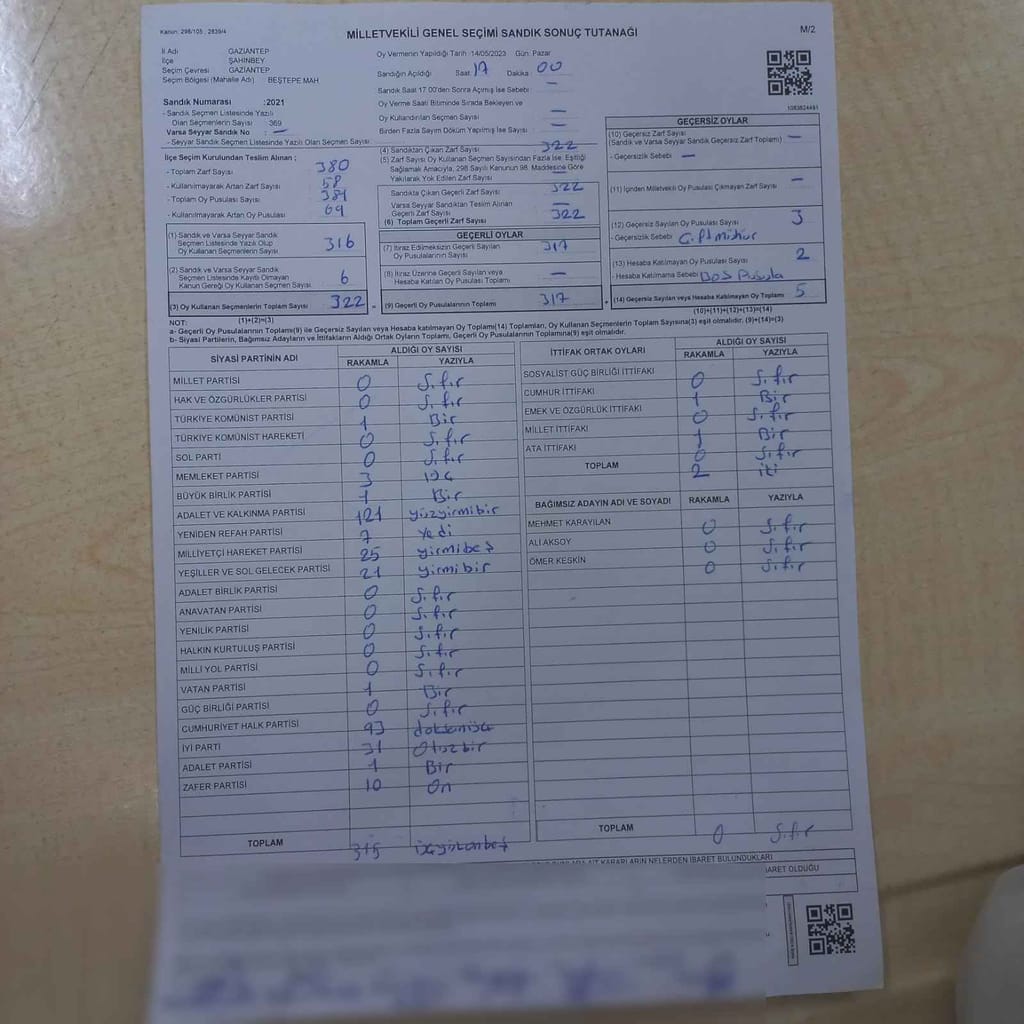 Kanun: 298/105 ; 2839/4
MİLLETVEKİLİ GENEL SEÇİMİ SANDIK SONUÇ TUTANAĞI
M/2
İl Adı GAZİANTEP
İlçe ŞAHİNBEY
Seçim Çevresi GAZİANTEP
Seçim Bölgesi (Mahalle Adı) BEŞTEPE MAH
Sandık Numarası :2021
- Sandık Seçmen Listesinde Yazılı
Olan Seçmenlerin Sayısı 369
Varsa Seyyar Sandık No : —
- Seyyar Sandık Seçmen Listesinde Yazılı Olan Seçmen Sayısı
İlçe Seçim Kurulundan Teslim Alınan ;
- Toplam Zarf Sayısı 380
- Kullanılmayarak Artan Zarf Sayısı 58
- Toplam Oy Pusulası Sayısı 384
- Kullanılmayarak Artan Oy Pusulası 64
(1) Sandık ve Varsa Seyyar Sandık
Seçmen Listesinde Yazılı Olup
Oy Kullanan Seçmenlerin Sayısı 316
(2) Sandık ve Varsa Seyyar Sandık
Seçmen Listesinde Kayıtlı Olmayan
Kanun Gereği Oy Kullanan Seçmen Sayısı 6
(3) Oy Kullanan Seçmenlerin Toplam Sayısı 322
(1)+(2)=(3)
Oy Vermenin Yapıldığı Tarih :14/05/2023 Gün: Pazar
Sandığın Açıldığı Saat: 17 Dakika : 00
Sandık Saat 17.00'den Sonra Açılmış İse Sebebi : —
Oy Verme Saati Bitiminde Sırada Bekleyen ve
Oy Kullandırılan Seçmen Sayısı —
Birden Fazla Sayım Döküm Yapılmış İse Sayısı —
(4) Sandıktan Çıkan Zarf Sayısı 322
(5) Zarf Sayısı Oy Kullanan Seçmen Sayısından Fazla İse, Eşitliği
Sağlamak Amacıyla, 298 Sayılı Kanunun 98. Maddesine Göre
Yakılarak Yok Edilen Zarf Sayısı —
Sandıkta Çıkan Geçerli Zarf Sayısı 322
Varsa Seyyar Sandıktan Teslim Alınan
Geçerli Zarf Sayısı —
(6) Toplam Geçerli Zarf Sayısı 322
GEÇERLİ OYLAR
(7) İtiraz Edilmeksizin Geçerli Sayılan
Oy Pusulalarının Sayısı 317
(8) İtiraz Üzerine Geçerli Sayılan veya
Hesaba Katılan Oy Pusulası Toplamı —
(9) Geçerli Oy Pusulalarının Toplamı 317
1083824491
GEÇERSİZ OYLAR
(10) Geçersiz Zarf Sayısı
(Sandık ve Varsa Seyyar Sandık Geçersiz Zarf Toplamı) —
- Geçersizlik Sebebi —
(11) İçinden Milletvekili Oy Pusulası Çıkmayan Zarf Sayısı —
(12) Geçersiz Sayılan Oy Pusulası Sayısı 3
- Geçersizlik Sebebi Çift Mühür
(13) Hesaba Katılmayan Oy Pusulası Sayısı 2
- Hesaba Katılmama Sebebi Boş Pusula
(14) Geçersiz Sayılan veya Hesaba Katılmayan Oy Toplamı 5
(10)+(11)+(12)+(13)=(14)
NOT:
a- Geçerli Oy Pusulalarının Toplamı(9) ile Geçersiz Sayılan veya Hesaba katılmayan Oy Toplamı(14) Toplamları, Oy Kullanan Seçmenlerin Toplam Sayısına(3) eşit olmalıdır. (9)+(14)=(3)
b- Siyasi Partilerin, Bağımsız Adayların ve İttifakların Aldığı Ortak Oyların Toplamı, Geçerli Oy Pusulalarının Toplamına(9) eşit olmalıdır.
SİYASİ PARTİNİN ADI
ALDIĞI OY SAYISI
RAKAMLA YAZIYLA
MİLLET PARTİSİ 0 Sıfır
HAK VE ÖZGÜRLÜKLER PARTİSİ 0 Sıfır
TÜRKİYE KOMÜNİST PARTİSİ 1 Bir
TÜRKİYE KOMÜNİST HAREKETİ 0 Sıfır
SOL PARTİ 0 Sıfır
MEMLEKET PARTİSİ 3 üç
BÜYÜK BİRLİK PARTİSİ 1 Bir
ADALET VE KALKINMA PARTİSİ 121 yüzyirmibir
YENİDEN REFAH PARTİSİ 7 Yedi
MİLLİYETÇİ HAREKET PARTİSİ 25 yirmibeş
YEŞİLLER VE SOL GELECEK PARTİSİ 21 yirmibir
ADALET BİRLİK PARTİSİ 0 Sıfır
ANAVATAN PARTİSİ 0 Sıfır
YENİLİK PARTİSİ 0 Sıfır
HALKIN KURTULUŞ PARTİSİ 0 Sıfır
MİLLİ YOL PARTİSİ 0 Sıfır
VATAN PARTİSİ 1 Bir
GÜÇ BİRLİĞİ PARTİSİ 0 Sıfır
CUMHURİYET HALK PARTİSİ 93 doksanüç
İYİ PARTİ 31 Otuzbir
ADALET PARTİSİ 1 Bir
ZAFER PARTİSİ 10 On
TOPLAM 315 üçyüzonbeş
İTTİFAK ORTAK OYLARI
ALDIĞI OY SAYISI
RAKAMLA YAZIYLA
SOSYALİST GÜÇ BİRLİĞİ İTTİFAKI 0 Sıfır
CUMHUR İTTİFAKI 1 Bir
EMEK VE ÖZGÜRLÜK İTTİFAKI 0 Sıfır
MİLLET İTTİFAKI 1 Bir
ATA İTTİFAKI 0 Sıfır
TOPLAM 2 iki
BAĞIMSIZ ADAYIN ADI VE SOYADI RAKAMLA YAZIYLA
MEHMET KARAYILAN 0 Sıfır
ALİ AKSOY 0 Sıfır
ÖMER KESKİN 0 Sıfır
TOPLAM 0 Sıfır
KARARLARIN NELERDEN İBARET BULUNDUKLARI
İBARET OLDUĞU